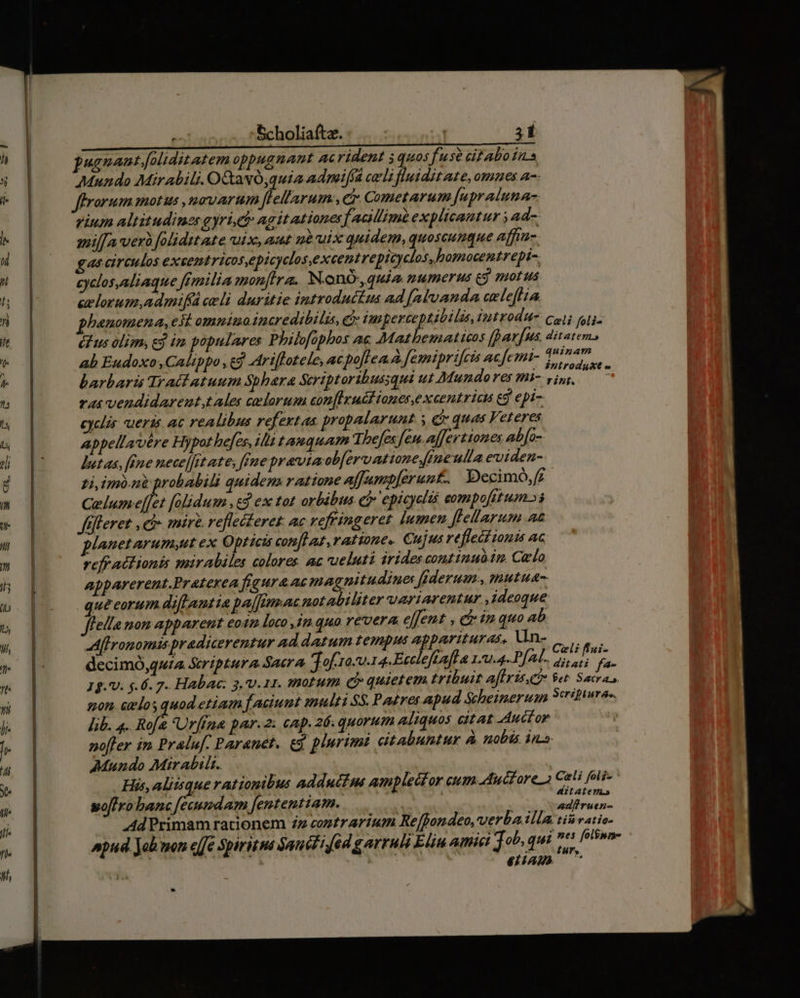 Scholiastæ. 31
pugnant, soliditatem oppugnant ac rident; quos fusè citabo in
Mundo Mirabili. Octavò, quia admissâ cœli fluiditate, omnes a-
strorum motus, novarum stellarum, & Cometarum supraluna-
rium altitudines gyri, & agitationes facillimè explicantur; ad-
missa verò soliditate vix, aut nè vix quidem, quoscunque affin-
gas circulos excentricos, epicyclos, excentrepicyclos, homocentrepi-
cyclos, aliaque similia monstra. Nonò, quia numerus & motus
cælorum, admissâ cæli duritie introductus ad salvanda cælestia
phænomena, est omnino incredibilis, & imperceptibilis, introdu-
ctus olim, & in populares Philosophos ac Mathematicos sparsus
ab Eudoxo, Calippo, & Aristotele, ac postea à semipriscis ac semi-
barbaris Tractatuum Sphæræ Scriptoribus; qui ut Mundo res mi-
ras vendidarent, tales cælorum constructiones, excentricis & epi-
cyclis veris ac realibus refertas propalarunt; & quas Veteres
appellavére Hypotheses, illi tanquam Theses seu assertiones abso-
lutas, sine necessitate, sine prævia observatione, sine ulla eviden-
tia, imò nè probabili quidem ratione assumpserunt. Decimò, si
Cælum esset solidum, & ex tot orbibus & epicyclis compositum;
sisteret, & mirè reflecteret ac refringeret lumen stellarum ac
planetarum, ut ex Opticis constat, ratione. Cujus reflectionis ac
refractionis mirabiles colores ac veluti irides continuò in Cælo
apparerent. Præterea figuræ ac magnitudines siderum, mutua-
que eorum distantia passim ac notabiliter variarentur, ideoque
stella non apparent eo in loco, in quo revera essent, & in quo ab
Astronomis prædicerentur ad datum tempus apparituras. Un-
decimò, quia Scriptura Sacra Jos. 10. v. 14. Ecclesiasta 1. v. 4. Psal.
18. v. 5. 6. 7. Habac. 3. v. 11. motum & quietem tribuit astris, &
non cælo; quod etiam faciunt multi SS. Patres apud Scheinerum
lib. 4. Rosæ Ursinæ par. 2. cap. 26. quorum aliquos citat Auctor
noster in Prælus. Paranet. & plurimi citabuntur à nobis in
Mundo Mirabili.
His, aliisque rationibus adductus amplector cum Auctore
nostro hanc secundam sententiam.
Ad Primam rationem in contrarium Respondeo, verba illa
apud Job non esse Spiritus Sancti, sed garruli Eliu amici Job, qui
etiam
Cœli soli-
ditatem
quinam
introduxe-
rint.
Cœli flui-
ditati fa-
vet Sacra
Scriptura.
Cœli soli-
ditatem
adstruen-
tiũ ratio-
nes solvun-
tur.